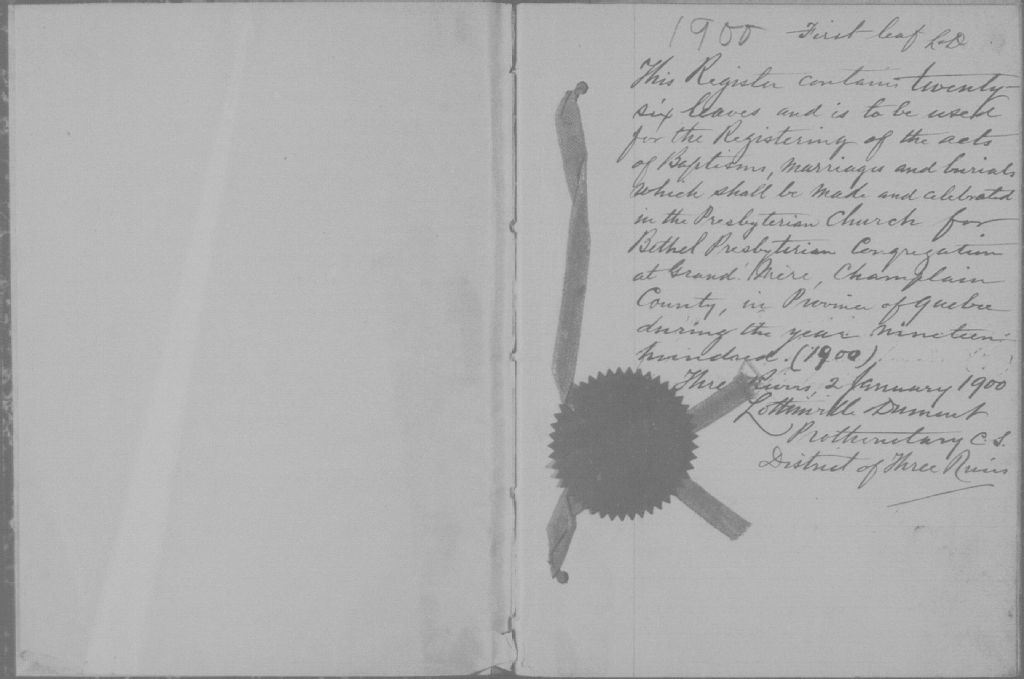 1900 First leaf L.D
This Register contains twenty-
six leaves and is to be used
for the Registering of the acts
of Baptisms, marriages and burials
which shall be made and celebrated
in the Presbyterian Church for
Bethel Presbyterian Congregation
at Grand'Mère, Champlain
County, in Province of Quebec
during the year nineteen-
hundred. (1900)
Three Rivers, 2 January 1900
Lottinville Dumont
Prothonotary C.S.
District of Three Rivers